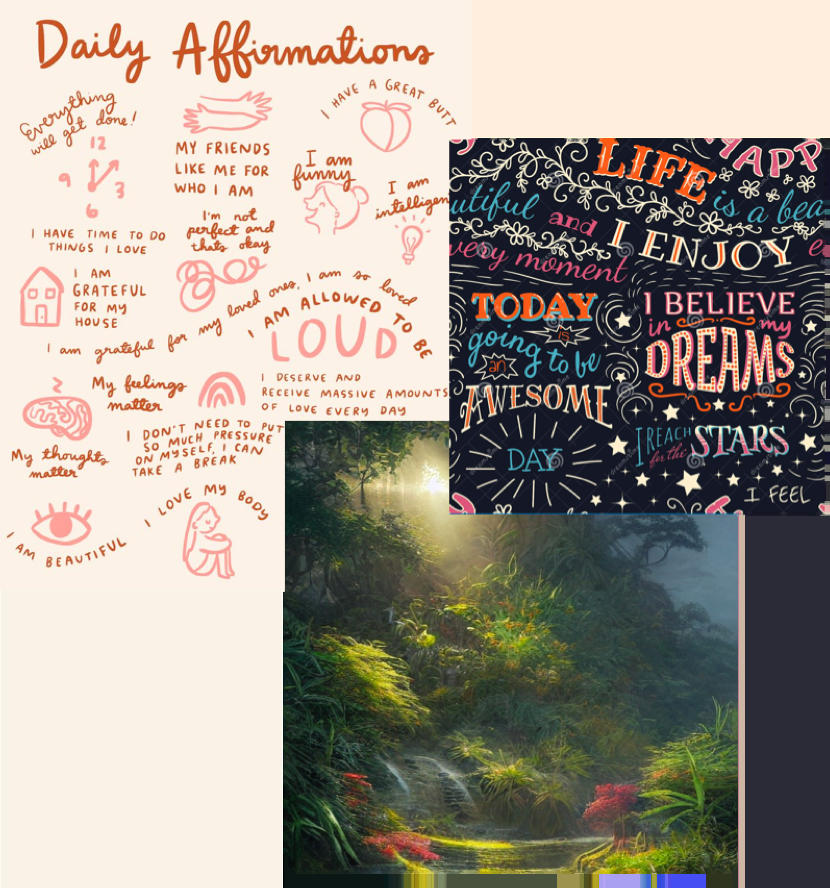 Daily Affirmations
Everything
will get done!
12
9
3
6
I HAVE TIME TO DO
THINGS I LOVE
MY FRIENDS
LIKE ME FOR
WHO I AM
I HAVE A GREAT BUTT
I am
funny
I am
intelligen
I'm not
perfect and
thats okay
I AM
GRATEFUL
FOR MY
HOUSE
I am grateful for my loved ones, I am so loved
I AM ALLOWED TO BE
LOUD
My feelings
matter
I DESERVE AND
RECEIVE MASSIVE AMOUNTS
OF LOVE EVERY DAY
My thoughts
matter
I DON'T NEED TO PUT
SO MUCH PRESSURE
ON MYSELF, I CAN
TAKE A BREAK
I AM BEAUTIFUL
I LOVE MY BODY
HAPP
LIFE is a bea
utiful and
I ENJOY
very moment
TODAY
is
going to be
an
AWESOME
DAY
I BELIEVE
in my
DREAMS
I REACH
for the
STARS
I FEEL